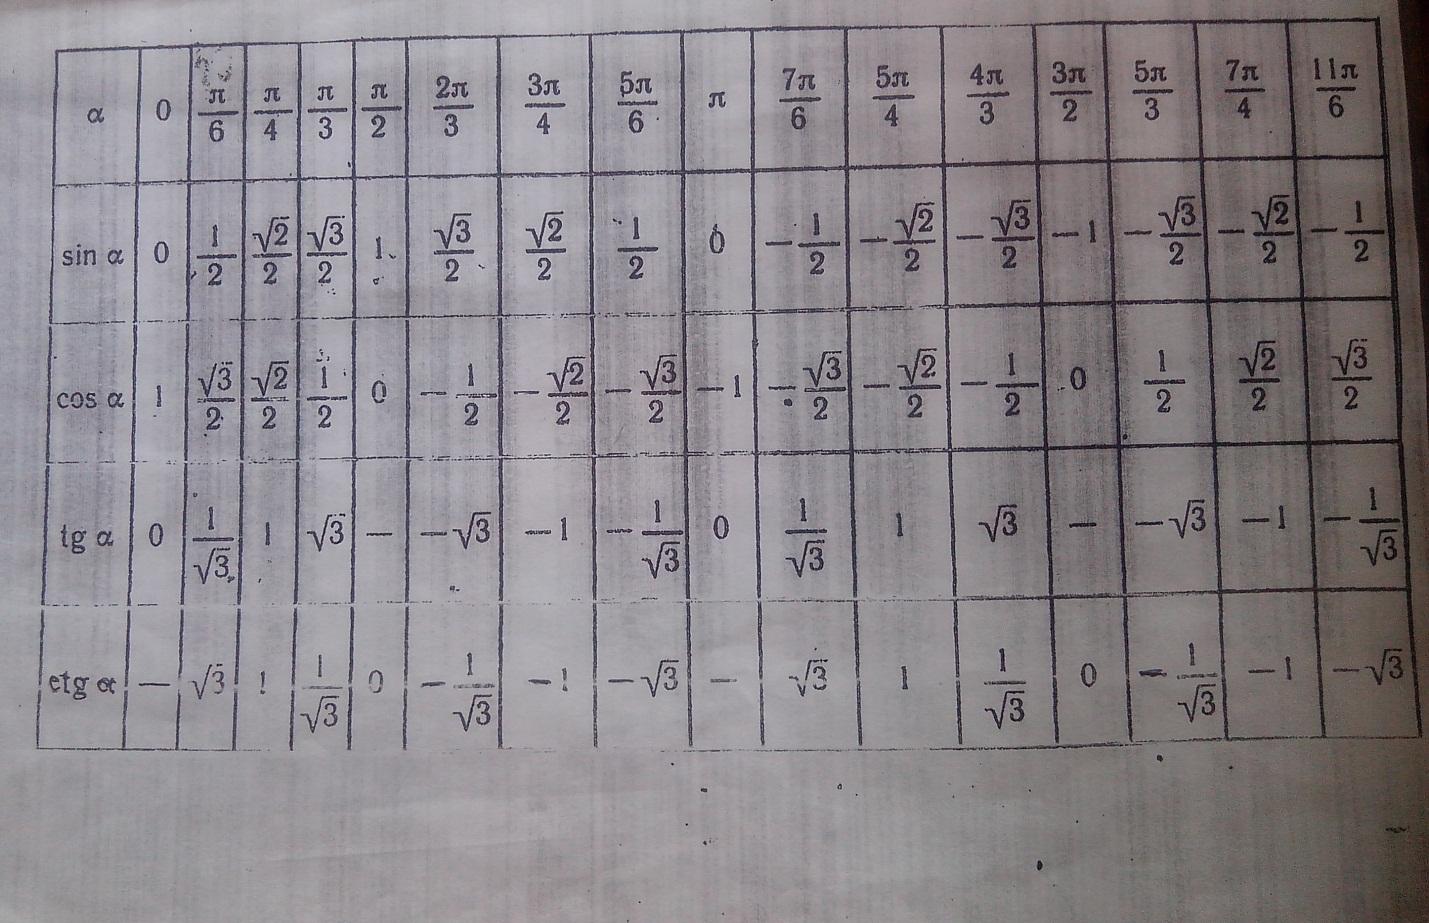 α 0 π/6 π/4 π/3 π/2 2π/3 3π/4 5π/6 π 7π/6 5π/4 4π/3 3π/2 5π/3 7π/4 11π/6
sin α 0 1/2 √2/2 √3/2 1 √3/2 √2/2 1/2 0 −1/2 −√2/2 −√3/2 −1 −√3/2 −√2/2 −1/2
cos α 1 √3/2 √2/2 1/2 0 −1/2 −√2/2 −√3/2 −1 −√3/2 −√2/2 −1/2 0 1/2 √2/2 √3/2
tg α 0 1/√3 1 √3 — −√3 −1 −1/√3 0 1/√3 1 √3 — −√3 −1 −1/√3
ctg α — √3 1 1/√3 0 −1/√3 −1 −√3 — √3 1 1/√3 0 −1/√3 −1 −√3